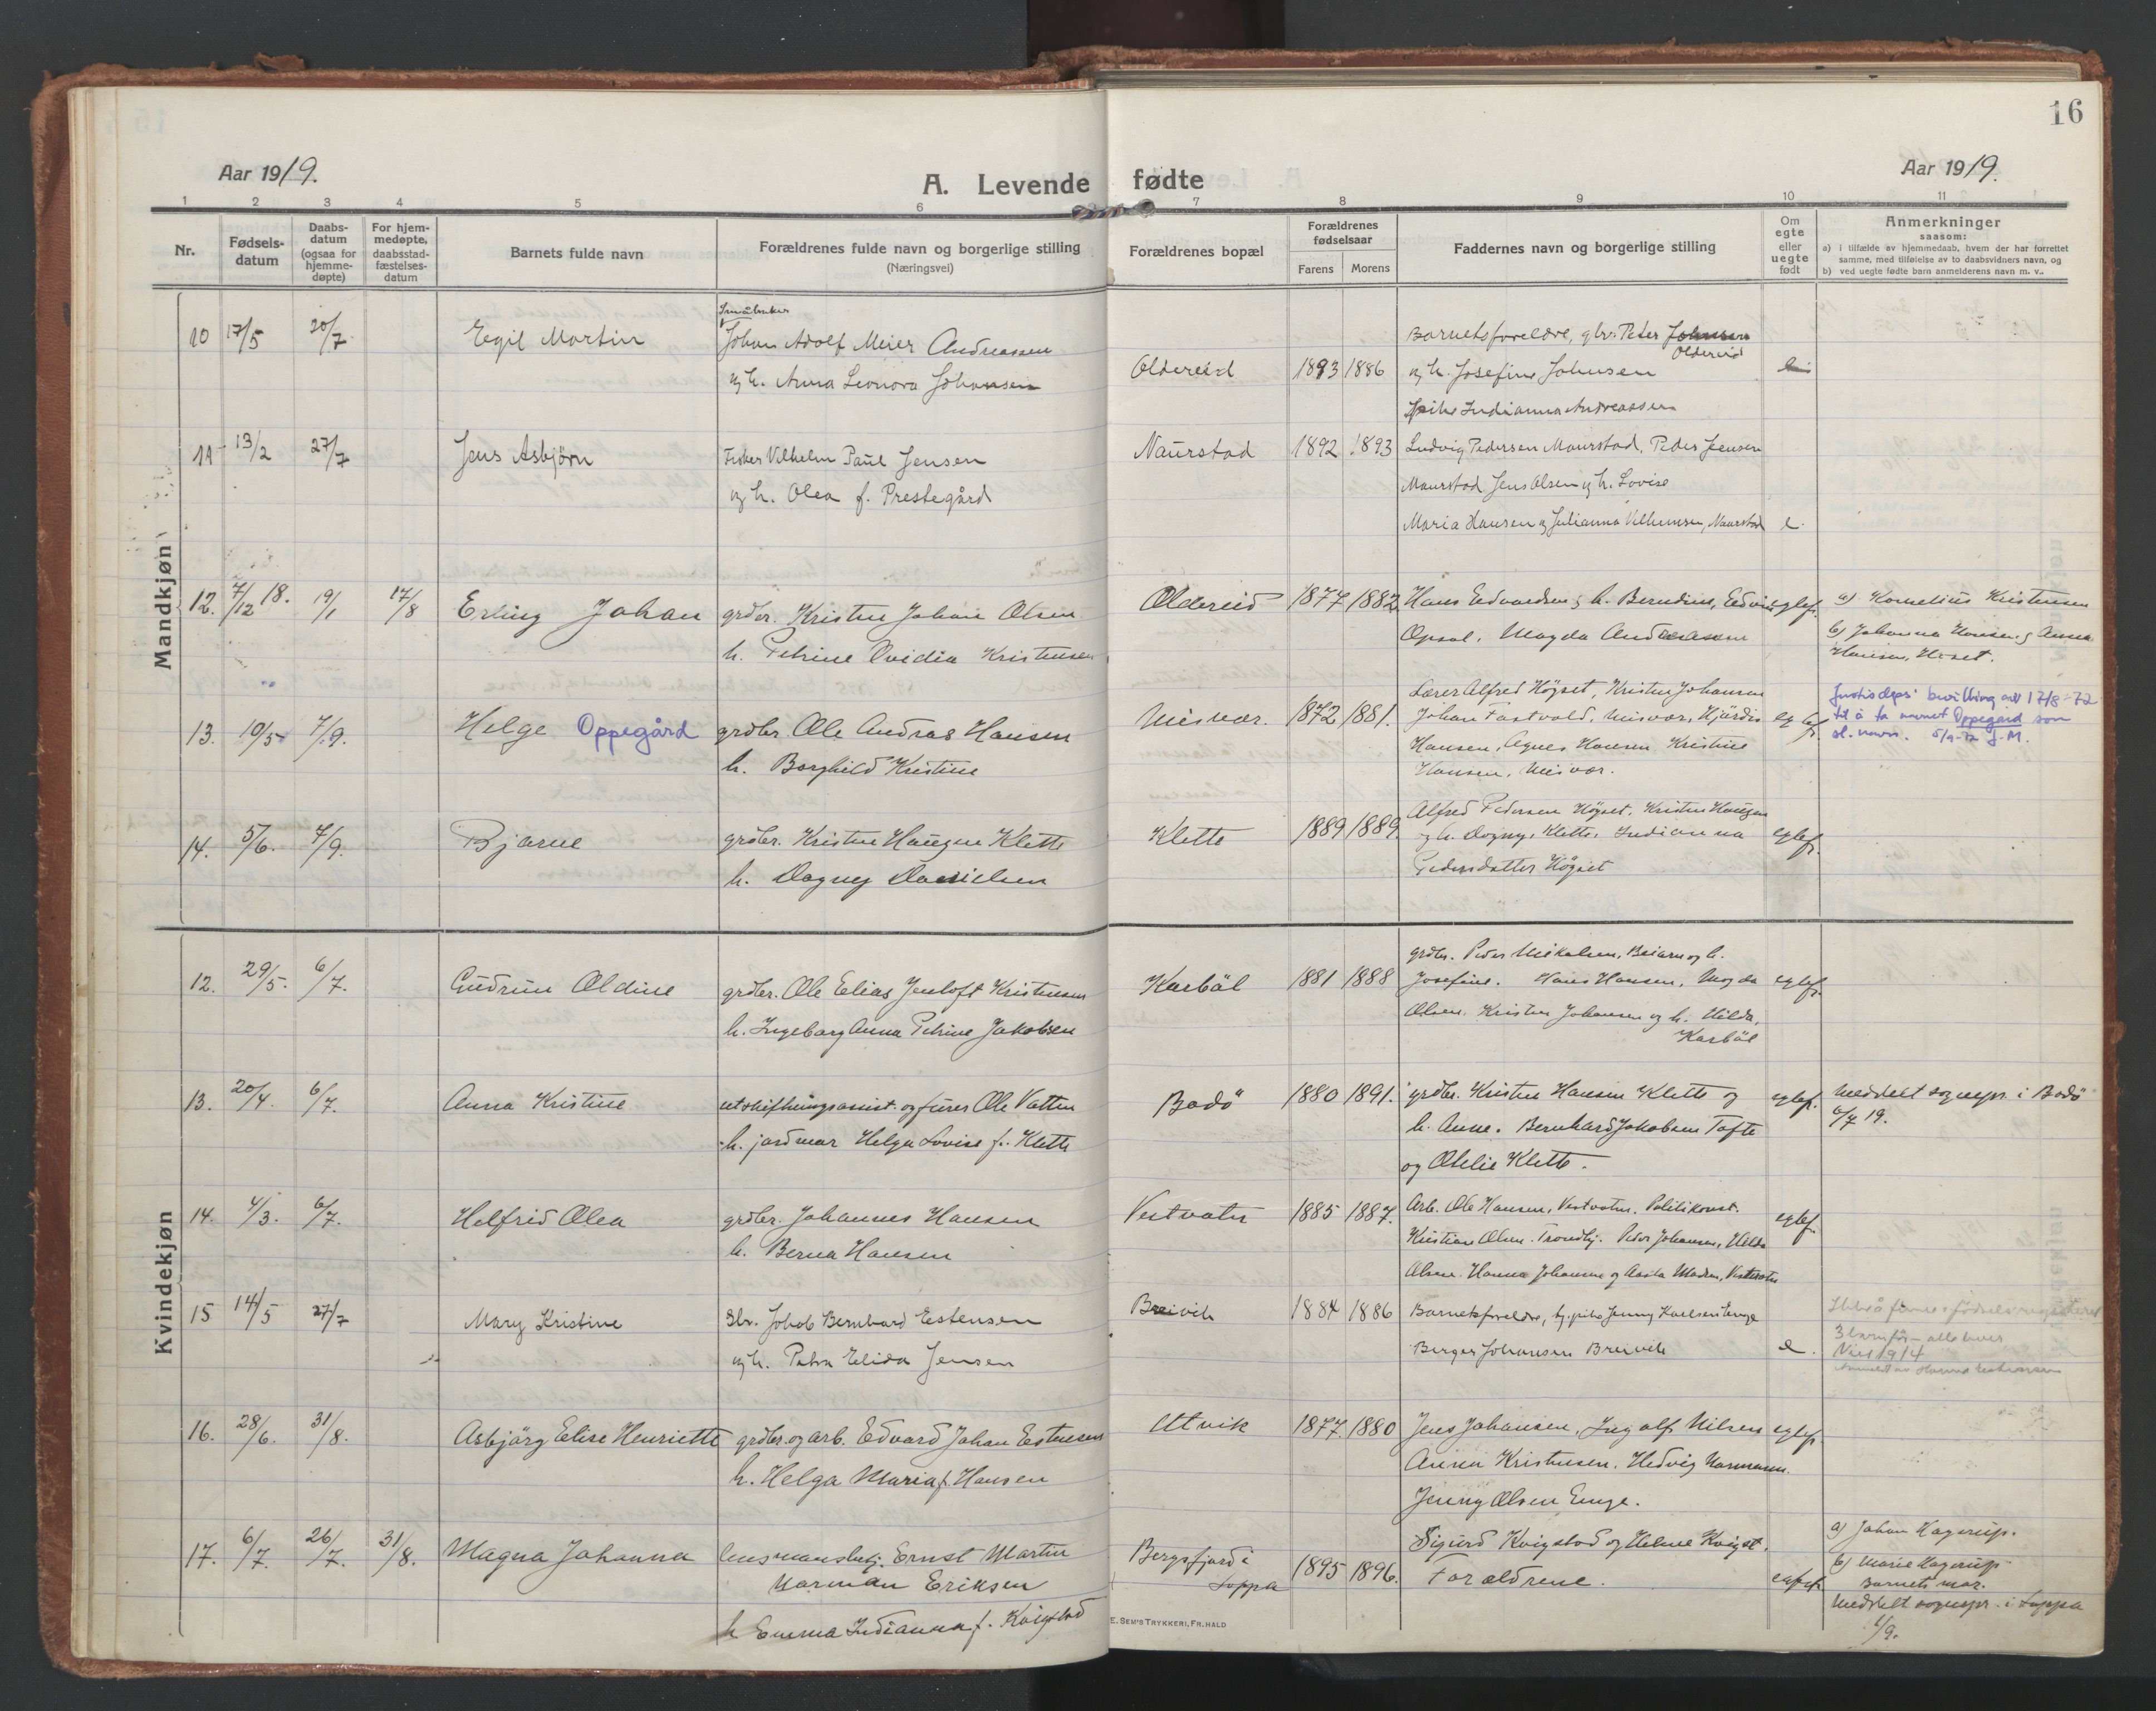 16
Aar 1919.
A. Levende fødte
Aar 1919.
1 2 3 4 5 6 7 8 9 10 11
Nr.
Fødsels-
datum
Daabs-
datum
(ogsaa for
hjemme-
døpte)
For hjem-
medøpte,
daabsstad-
fæstelses-
datum
Barnets fulde navn
Forældrenes fulde navn og borgerlige stilling
(Næringsvei)
Forældrenes bopæl
Forældrenes
fødselsaar
Farens Morens
Faddernes navn og borgerlige stilling
Om
egte
eller
uegte
født
Anmerkninger
saasom:
a) i tilfælde av hjemmedaab, hvem der har forrettet
samme, med tilføielse av to daabsvidners navn, og
b) ved uegte fødte barn anmelderens navn m. v..
Mandkjøn
10 17/5 20/7 Egil Martin
Småbruker
Johan Adolf Meier Andreassen
og h. Anna Leonora Johansen
Oldereid 1893 1886
Barnets foreldre, gbr. Peder Johnsen
Oldereid
og h. Josefine Johnsen
pike Indianna Andreassen
11 13/2 27/7 Jens Asbjörn
Fisker Vilhelm Paul Jensen
og h. Olea f. Prestegård
Naurstad 1892 1893
Ludvig Pedersen Naurstad, Peder Jensen
Naurstad Jens Olsen og h. Lovise
Maria Hansen og Julianna Vilhemsen, Naurstad e.
12. 7/12 18. 19/1 17/8 Erling Johan
grdbr. Kristen Johan Olsen
h. Petrine Ovidia Kristensen
Oldereid 1877 1882
Hans Edvardsen og h. Berndine, Edvin
Opsal. Magda Andreassen
egtef.
a) Kornelius Kristensen
b) Johanna Hansen og Anna
Hansen,
13. 10/5 7/9. Helge Oppegård
grdbr. Ole Andreas Hansen
h. Borghild Kristine
Misvær. 1872 1881.
Lærer Alfred Högset, Kristen Johansen
Johan Fastvold, Misvær, Hjördis
Hansen, Agnes Hansen Kristine
Hansen, Misvær.
egtef.
Justisdeps' bevilling av 17/8-72
til å ta navnet Oppegård som
sl. navn. 5/9-72 J.M.
14. 5/6. 7/9. Bjarne
grdbr. Kristen Haugen Klette
h. Dagny Danielsen
Klette 1889 1889.
Alfred Pedersen Högset. Kristen Haugen
og h. Dagny, Klette, Indianna
Pedersdatter Högset
egtef.
Kvindekjøn
12. 29/5. 6/7. Gudrun Oldine
grdbr. Ole Elias Jenloft Kristensen
h. Ingeborg Anna Petrine Jakobsen
Karböl 1881 1888
grdbr. Peder Mikalsen, Beiarn og h.
Josefine. Hans Hansen, Magda
Olsen. Kristen Johansen og h. Hilda,
Karböl
egtef.
13. 20/4. 6/7. Anna Kristine
utskiftningsassist. og fører Ole Vatten
h. jordmor Helga Lovise f. Klette
Bodö 1880 1891.
grdbr. Kristen Hansen Klette og
h. Anne. Bernhard Jakobsen Tofte
og Otelie Klette.
egtef.
Meddelt sognepr. i Bodö
6/7 19.
14. 4/3. 6/7. Helfrid Olea
grdbr. Johannes Hansen
h. Berna Hansen
Vestvatn 1885 1887.
Arb. Ole Hansen, Vestvatn. Politikonst.
Kristian Olsen. Trondhj. Peder Johansen, Hilda
Olsen. Hanna Johansen og Aasta Madsen, Vestvatn
egtef.
15 14/5 27/7 Mary Kristine
Gbr. Jakob Bernhard Estensen
og h. Petra Elida Jensen
Breivik 1884 1886
Barnets foreldre, tj. pike Jenny Karlsen Enge
Berger Johansen Breivik
e.
16. 28/6. 31/8. Asbjörg Elise Henriette
grdbr. og arb. Edvard Johan Estensen
h. Helga Maria f. Hansen
Utvik 1877. 1880
Jens Johansen, Ingolf Nilsen
Anna Kristensen. Hedvig Normann.
Jenny Olsen Enge.
egtef.
17. 6/7. 26/7. 31/8. Magna Johanna
lensmansbetj. Ernst Martin
Norman Eriksen
h Emma Indianna f. Kvigstad
Bergsfjord i
Loppa
1895 1896.
Sigurd Kvigstad og Helene Kvigst.
Forældrene.
egtef.
a) Johan Hagerup.
b) Marie Hagerup
Barnets mor.
Meddelt sognepr. i Loppa
1/9.
E. SEM'S TRYKKERI, FR. HALD